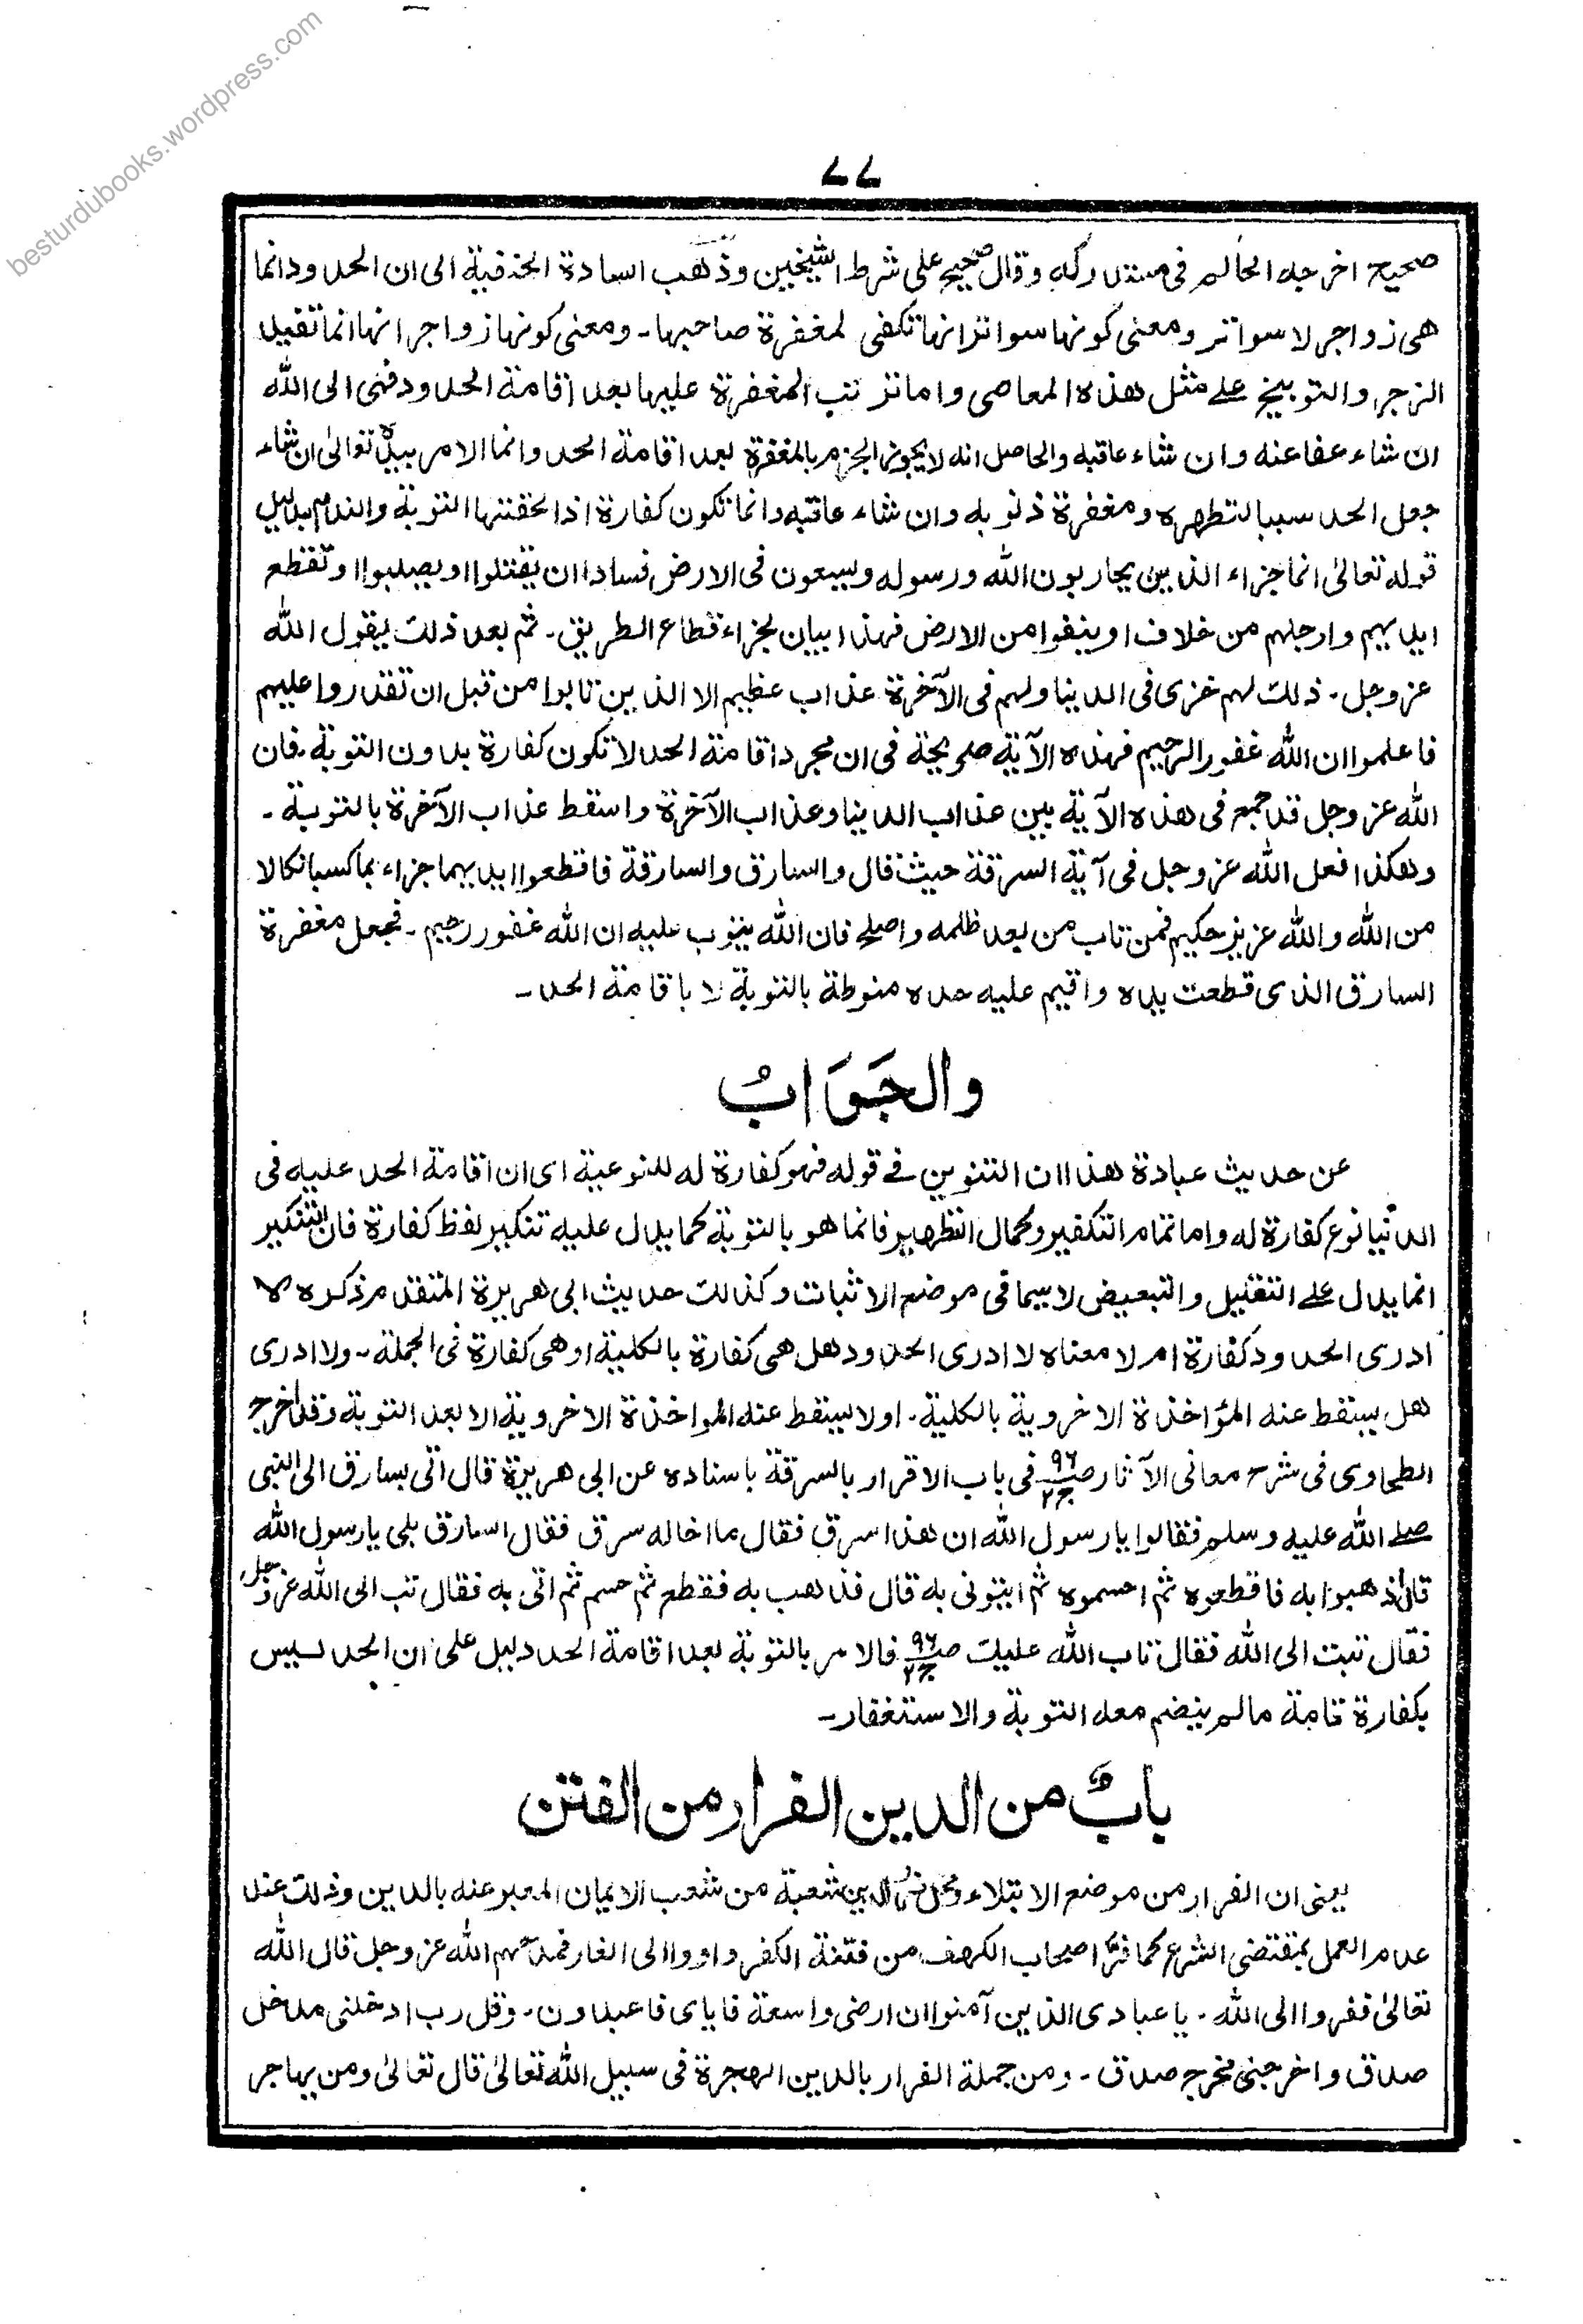 besturdubooks.wordpress.com
۷۷
صحیح اخرجه الحاكم فی مستدركه وقال صحیح علی شرط الشیخین وذهب السادة الحنفیة الی ان الحدود انما
هی زواجر لا سواتر ومعنی كونها سواتر انها تكفی لمغفرة صاحبها۔ ومعنی كونها زواجر انها انما تفید
الزجر والتوبیخ علے مثل هذه المعاصی واما ترتب المغفرة علیها بعد اقامة الحدود فهی الی الله
ان شاء عفا عنه وان شاء عاقبه والحاصل انه لا یجوز الجزم بالمغفرة بعد اقامة الحد وانما الامر بیده تعالیٰ ان شاء
جعل الحد سببا لتطهره ومغفرة ذنوبه وان شاء عاقبه وانما تكون كفارة اذا لحقتها التوبة والندم بدلیل
قوله تعالیٰ انما جزاء الذین یحاربون الله ورسوله ویسعون فی الارض فسادا ان یقتلوا او یصلبوا او تقطع
ایدیهم وارجلهم من خلاف او ینفوا من الارض فهذا بیان لجزاء قطاع الطریق۔ ثم بعد ذلك یقول الله
عزوجل۔ ذلك لهم خزی فی الدنیا ولهم فی الآخرة عذاب عظیم الا الذین تابوا من قبل ان تقدروا علیهم
فاعلموا ان الله غفور الرحیم فهذه الآیة صریحة فی ان مجرد اقامة الحد لا تكون كفارة بدون التوبة۔ فان
الله عزوجل قد جمع فی هذه الآیة بین عذاب الدنیا وعذاب الآخرة واسقط عذاب الآخرة بالتوبة۔
وهكذا فعل الله عزوجل فی آیة السرقة حیث قال والسارق والسارقة فاقطعوا ایدیهما جزاء بما كسبا نكالا
من الله والله عزیز حكیم فمن تاب من بعد ظلمه واصلح فان الله یتوب علیه ان الله غفور رحیم۔ فجعل مغفرة
السارق الذی قطعت یده واقیم علیه حده منوطة بالتوبة لا باقامة الحد۔
والجَوَابُ
عن حدیث عبادة هذا ان التنوین فے قوله فهو كفارة له للنوعیة ای ان اقامة الحد علیه فی
الدنیا نوع كفارة له واما تمام التكفیر وكمال التطهیر فانما هو بالتوبة كما یدل علیه تنكیر لفظ كفارة فان التنكیر
انما یدل علے التقلیل والتبعیض لا سیما فی موضع الاثبات وكذلك حدیث ابی هریرة المتقدم ذكره لا
ادری الحدود كفارة ام لا معناه لا ادری الحدود هل هی كفارة بالكلیة او هی كفارة فی الجملة۔ ولا ادری
هل یسقط عنه المؤاخذة الاخرویة بالكلیة۔ او لا یسقط عنه المواخذة الاخرویة الا بعد التوبة وقد اخرج
الطحاوی فی شرح معانی الآثار ص۹۶ ج۲ فی باب الاقرار بالسرقة باسناده عن ابی هریرة قال اتی بسارق الی النبی
صلے الله علیه وسلم فقالوا یا رسول الله ان هذا سرق فقال ما اخاله سرق فقال السارق بلی یا رسول الله
قال اذهبوا به فاقطعوه ثم احسموه ثم ایتونی به قال فذهب به فقطع ثم حسم ثم اتی به فقال تب الی الله عزوجل
فقال تبت الی الله فقال تاب الله علیك ص۹۶ ج۲ فالامر بالتوبة بعد اقامة الحد دلیل علی ان الحد لیس
بكفارة تامة ما لم ینضم معه التوبة والاستغفار۔
بابٌ من الدین الفرار من الفتن
یعنی ان الفرار من موضع الابتلاء ومحل الدین شعبة من شعب الایمان المعبر عنه بالدین وذلك عند
عدم العمل بمقتضی الشرع كما فرّ اصحاب الكهف من فتنة الكفر واووا الی الغار فمدحهم الله عزوجل قال الله
تعالیٰ ففروا الی الله۔ یا عبادی الذین آمنوا ان ارضی واسعة فایای فاعبدون۔ وقل رب ادخلنی مدخل
صدق واخرجنی مخرج صدق۔ ومن جملة الفرار بالدین الهجرة فی سبیل الله تعالیٰ قال تعالیٰ ومن یهاجر